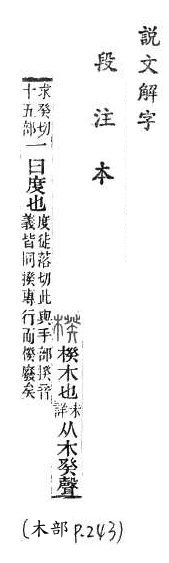 說文解字
段注本
楑 楑木也 未詳 从木癸聲
求癸切
十五部
一曰度也
度徒落切此與手部揆音
義皆同揆專行而楑廢矣
(木部 p.243)